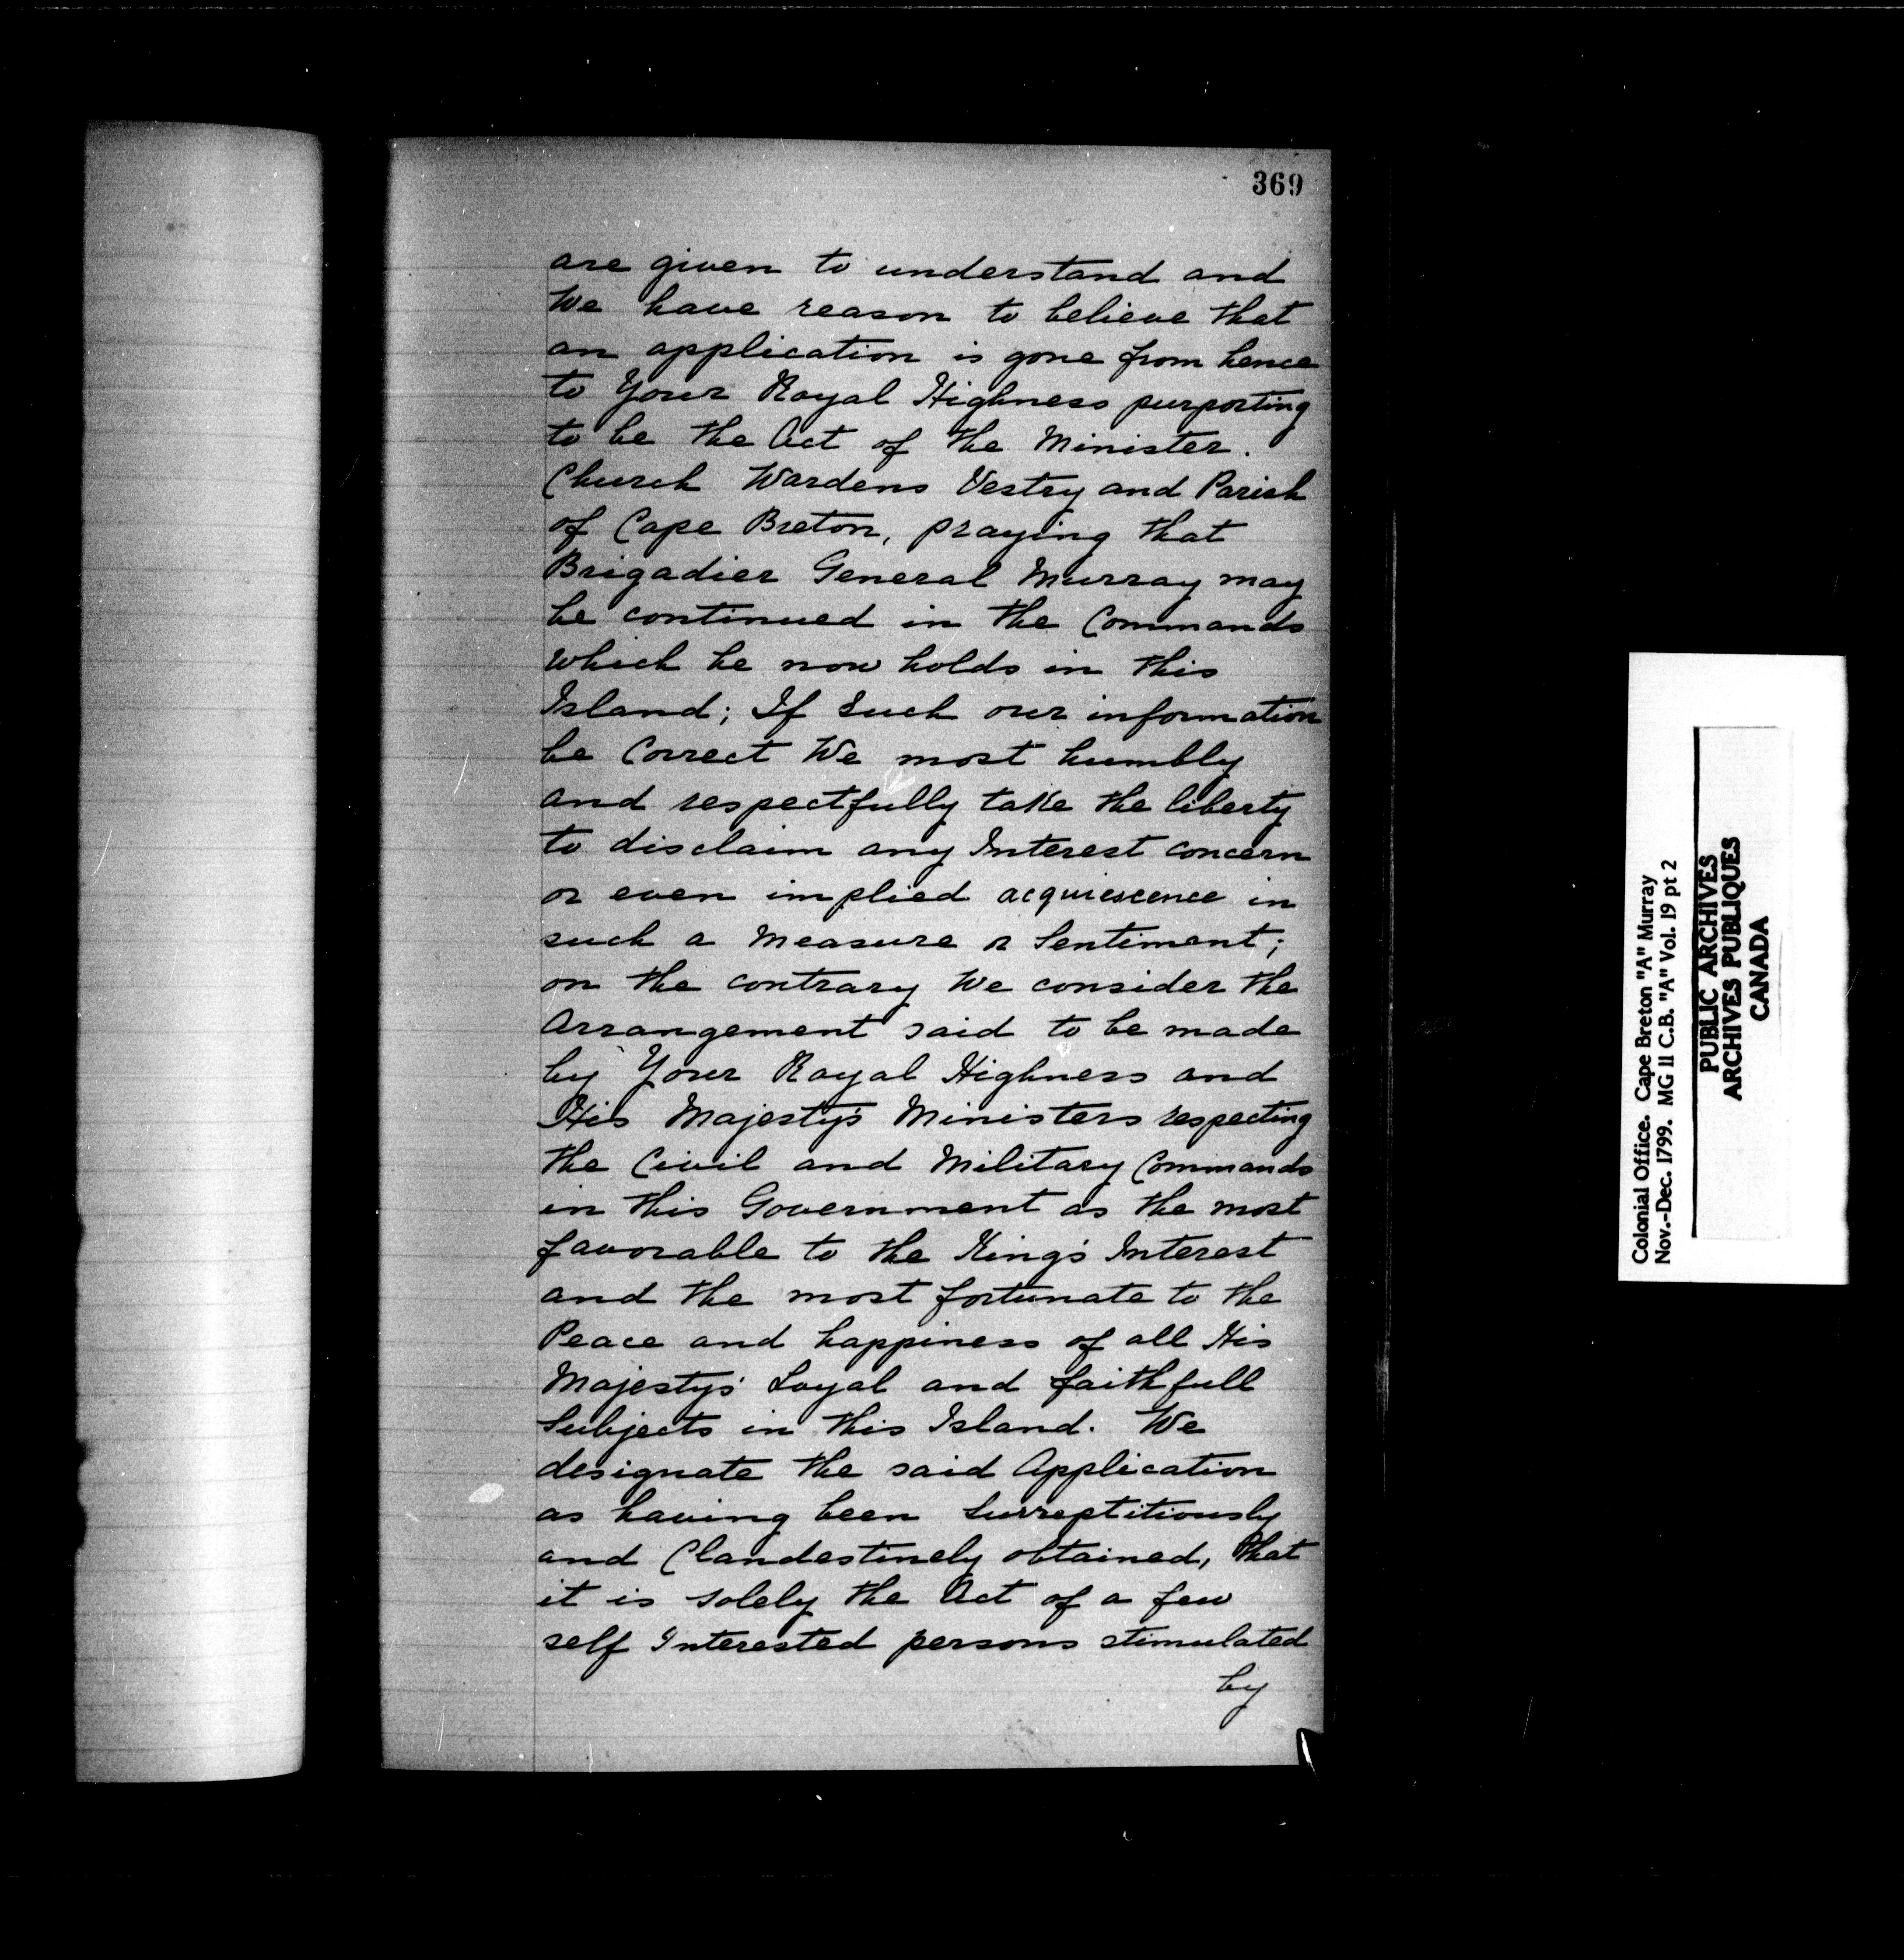 369
are given to understand and
We have reason to believe that
an application is gone from hence
to Your Royal Highness purporting
to be the Act of the Minister.
Church Wardens Vestry and Parish
of Cape Breton, praying that
Brigadier General Murray may
be continued in the Commands
which he now holds in this
Island; If Such our information
be Correct We most humbly
and respectfully take the liberty
to disclaim any Interest concern
or even implied acquiescence in
such a Measure or Sentiment;
on the contrary We consider the
Arrangement said to be made
by Your Royal Highness and
His Majesty's Ministers respecting
the Civil and Military Commands
in this Government as the most
favorable to the King's Interest
and the most fortunate to the
Peace and happiness of all His
Majesty's Loyal and faithfull
Subjects in this Island. We
designate the said Application
as having been Surreptitiously
and Clandestinely obtained, that
it is solely the Act of a few
self Interested persons stimulated
by
Colonial Office. Cape Breton "A" Murray
Nov.-Dec. 1799. MG 11 C.B. "A" Vol. 19 pt 2
PUBLIC ARCHIVES
ARCHIVES PUBLIQUES
CANADA